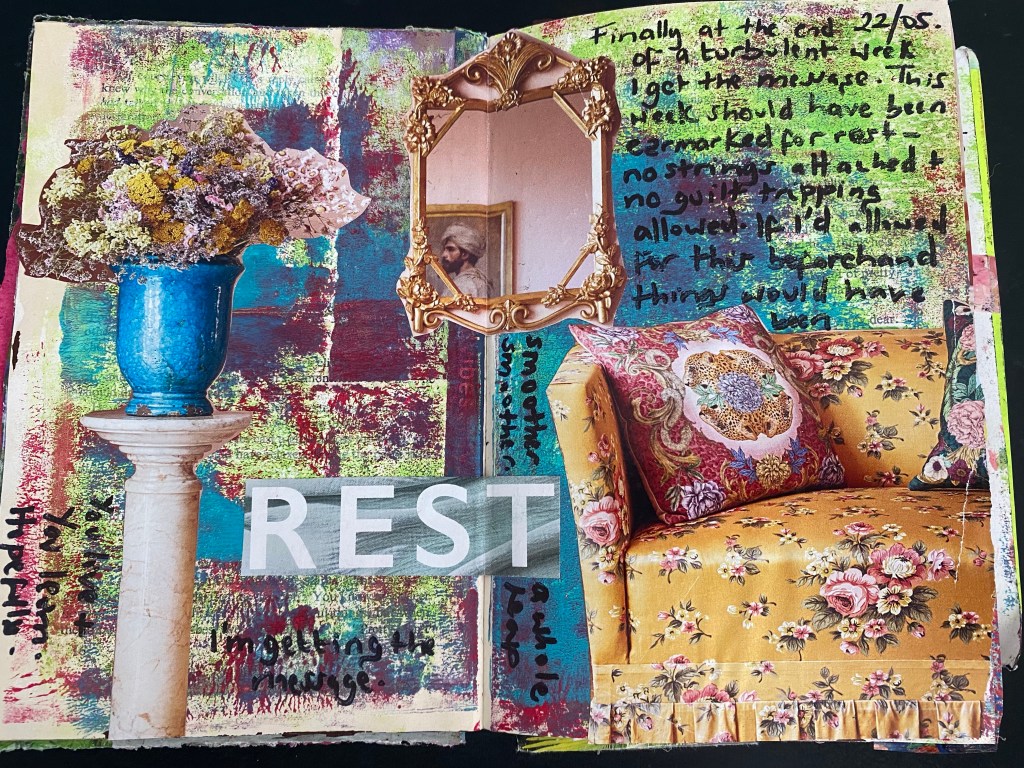 Finally at the end 22/05.
of a turbulent week
I get the message. This
week should have been
earmarked for rest –
no strings attached +
no guilt tripping
allowed. If I'd allowed
for this beforehand
things would have
been
smoother
a whole
heap
REST
I'm getting the
message.
You live +
You learn.
Hopefully.
knew
dear.